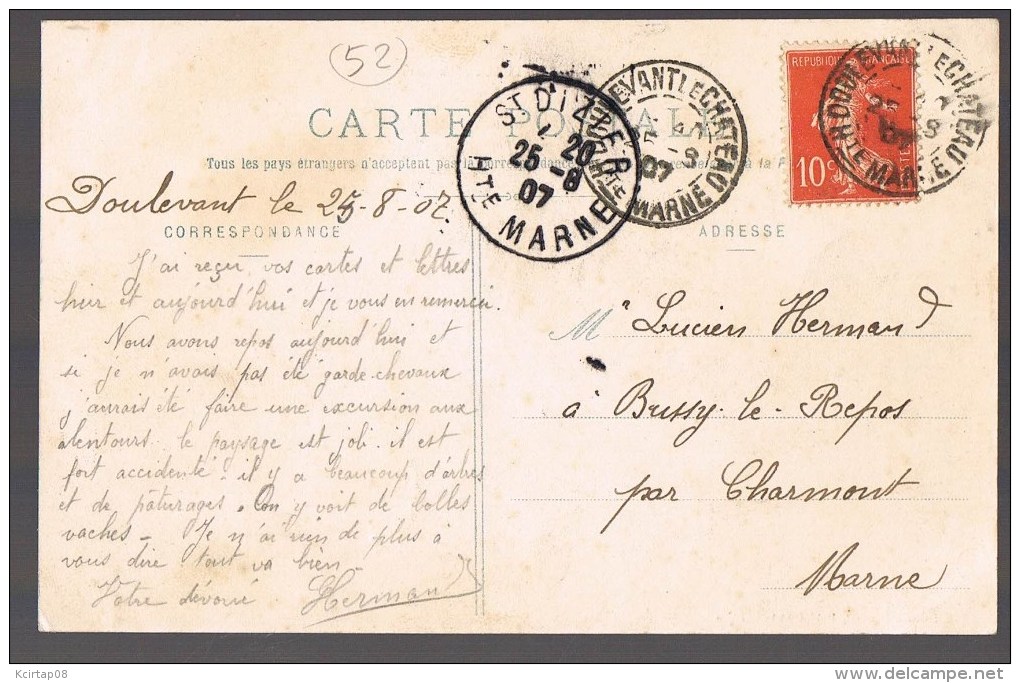 52
CARTE POSTALE
Tous les pays étrangers n'acceptent pas la correspondance
ST DIZIER
4 20
25 -8
07
HTE MARNE
DOULEVANT LE CHATEAU
25 -8
07
HTE MARNE
REPUBLIQUE FRANÇAISE
10c
DOULEVANT LE CHATEAU
25 -8
07
HTE MARNE
Doulevant le 25-8-07
CORRESPONDANCE
ADRESSE
J'ai reçu vos cartes et lettres
hier et aujourd'hui et je vous en remercie.
Nous avons repos aujourd'hui et
si je n'avais pas été garde-chevaux
j'aurais été faire une excursion aux
alentours. le paysage est joli il est
fort accidenté. il y a beaucoup d'arbres
et de pâturages. On y voit de belles
vaches - Je n'ai rien de plus à
vous dire tout va bien -
Votre dévoué Hermand
Mr Lucien Hermand
à Bussy-le-Repos
par Charmont
Marne
Kcirtap08
delcampe.net